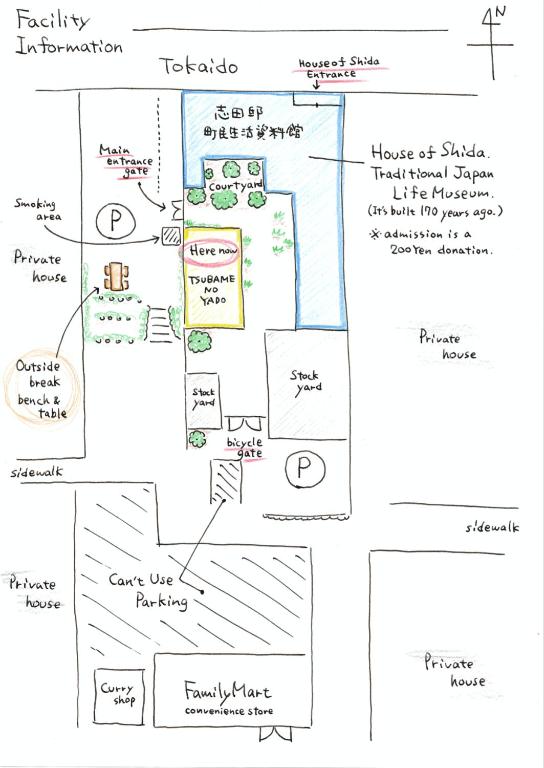 Facility
Information
N
Tokaido
House of Shida
Entrance
志田邸
町民生活資料館
Main
entrance
gate
courtyard
House of Shida.
Traditional Japan
Life Museum.
(It's built 170 years ago.)
※ admission is a
200Yen donation.
Smoking
area
P
Here now
TSUBAME
NO
YADO
Private
house
Private
house
Outside
break
bench &
table
Stock
yard
Stock
yard
bicycle
gate
P
sidewalk
sidewalk
Can't Use
Parking
Private
house
Private
house
Curry
shop
FamilyMart
convenience store